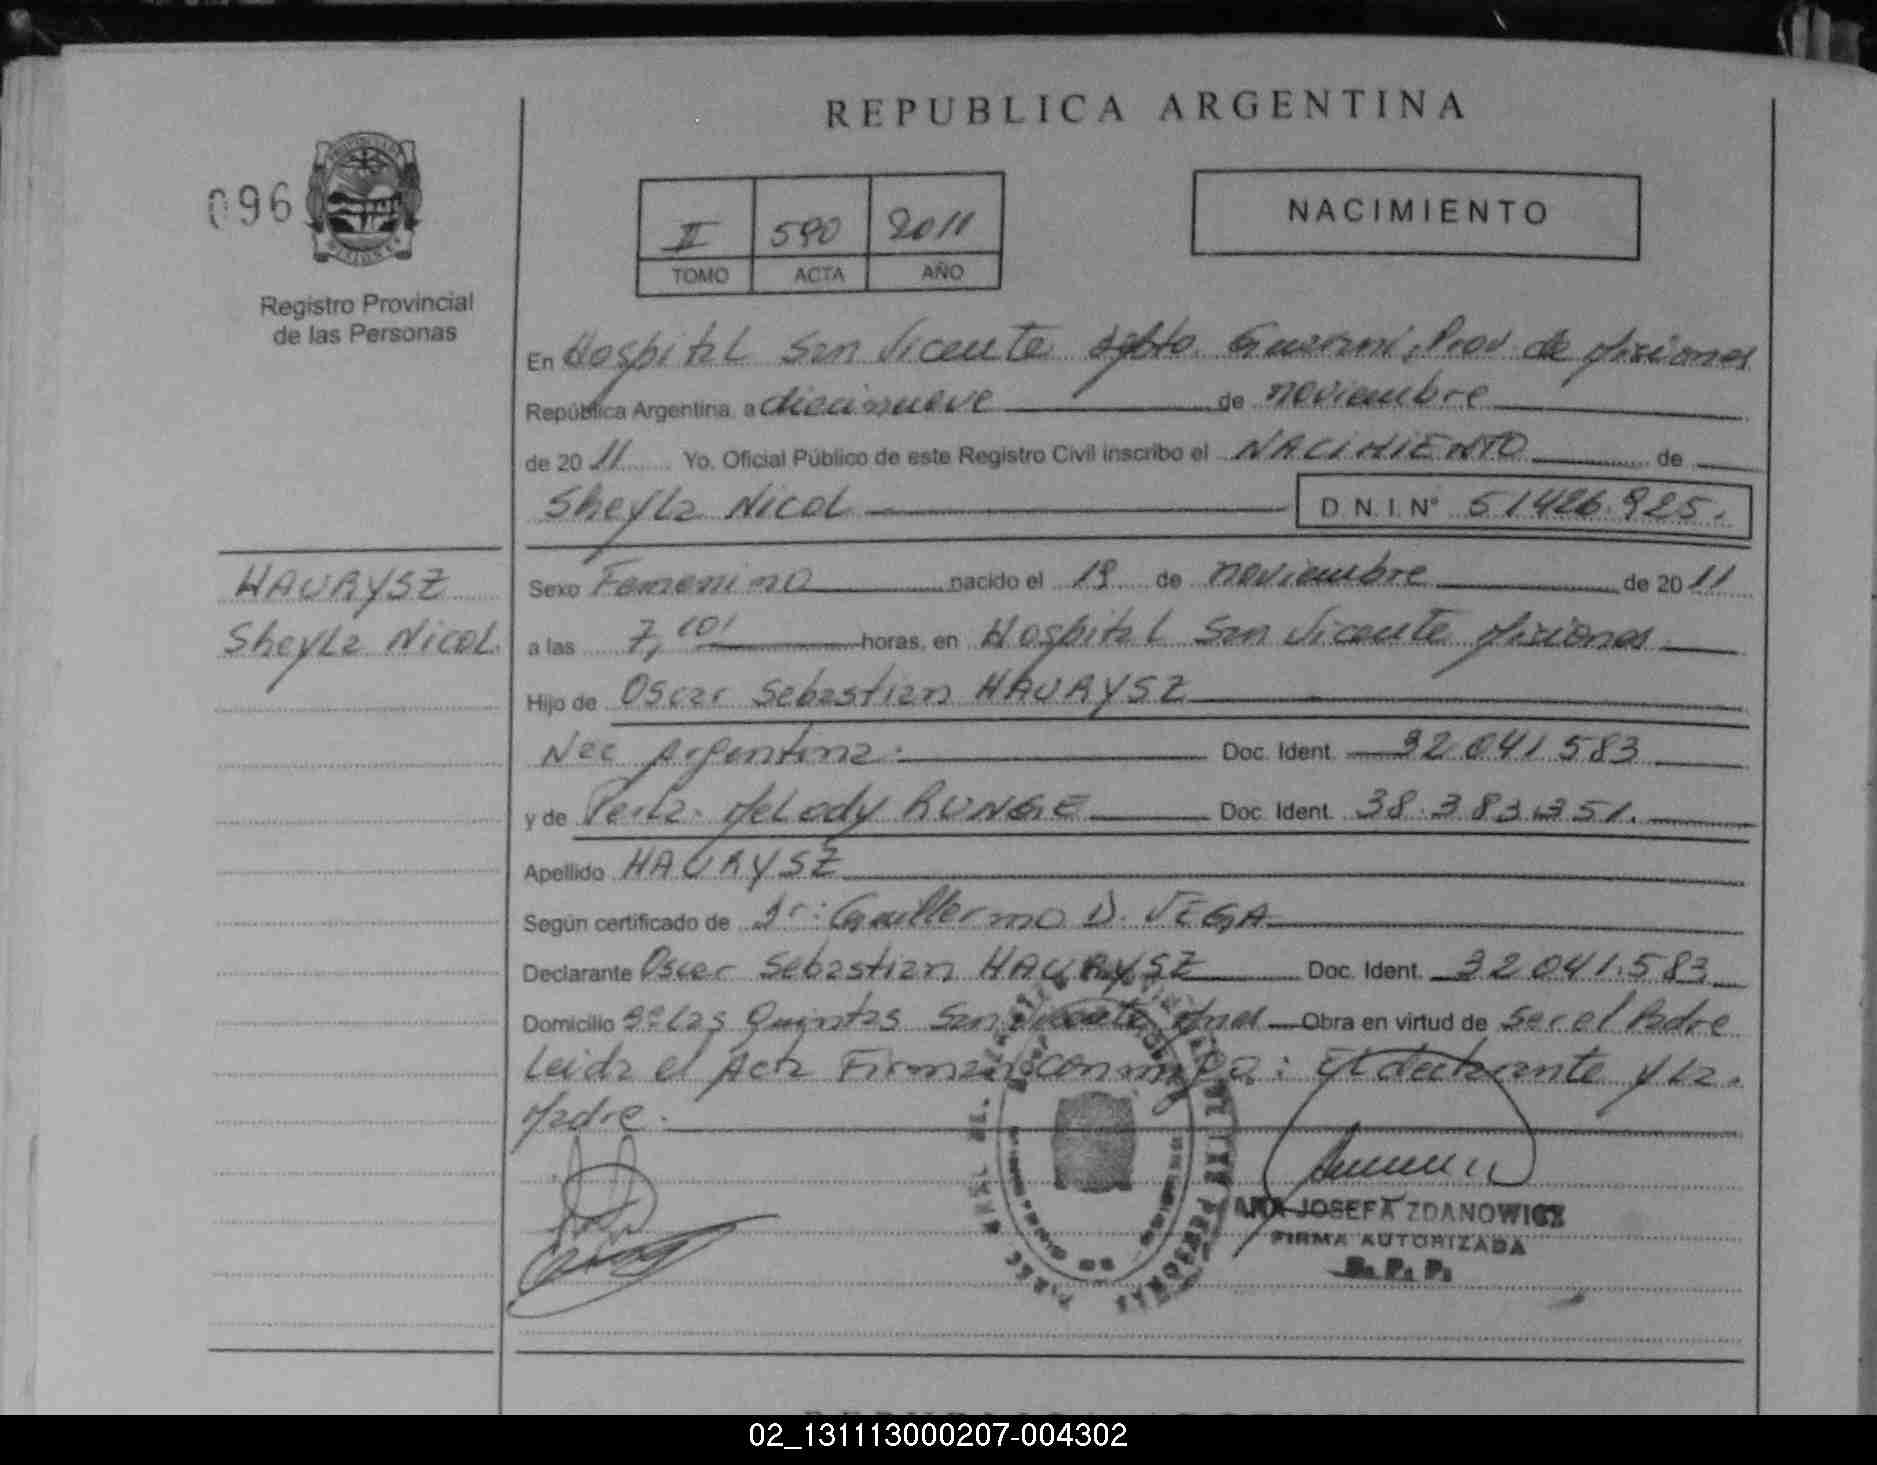 REPUBLICA ARGENTINA
096
II 590 2011
TOMO ACTA AÑO
NACIMIENTO
Registro Provincial
de las Personas
En Hospital San Vicente Dpto. Guarani, Prov. de Misiones
República Argentina, a diecinueve de noviembre
de 2011 Yo, Oficial Público de este Registro Civil inscribo el NACIMIENTO de
Sheyla Nicol D.N.I. Nº 51426.925.
HAURYSZ
Sheyla Nicol.
Sexo Femenino nacido el 19 de noviembre de 2011
a las 7,10' horas, en Hospital San Vicente Misiones
Hijo de Oscar Sebastian HAURYSZ
Nac Argentina. Doc. Ident. 32.041.583
y de Perla Melody RUNGE Doc. Ident. 38.383.351.
Apellido HAURYSZ
Según certificado de Dr: Guillermo D. VEGA
Declarante Oscar Sebastian HAURYSZ Doc. Ident. 32.041.583
Domicilio Bº Las Quintas San Vicente Mnes Obra en virtud de ser el Padre
Leida el Acta Firman conmigo: El declarante y La
Madre.
ANA JOSEFA ZDANOWICZ
FIRMA AUTORIZADA
R. P. P.
02_131113000207-004302